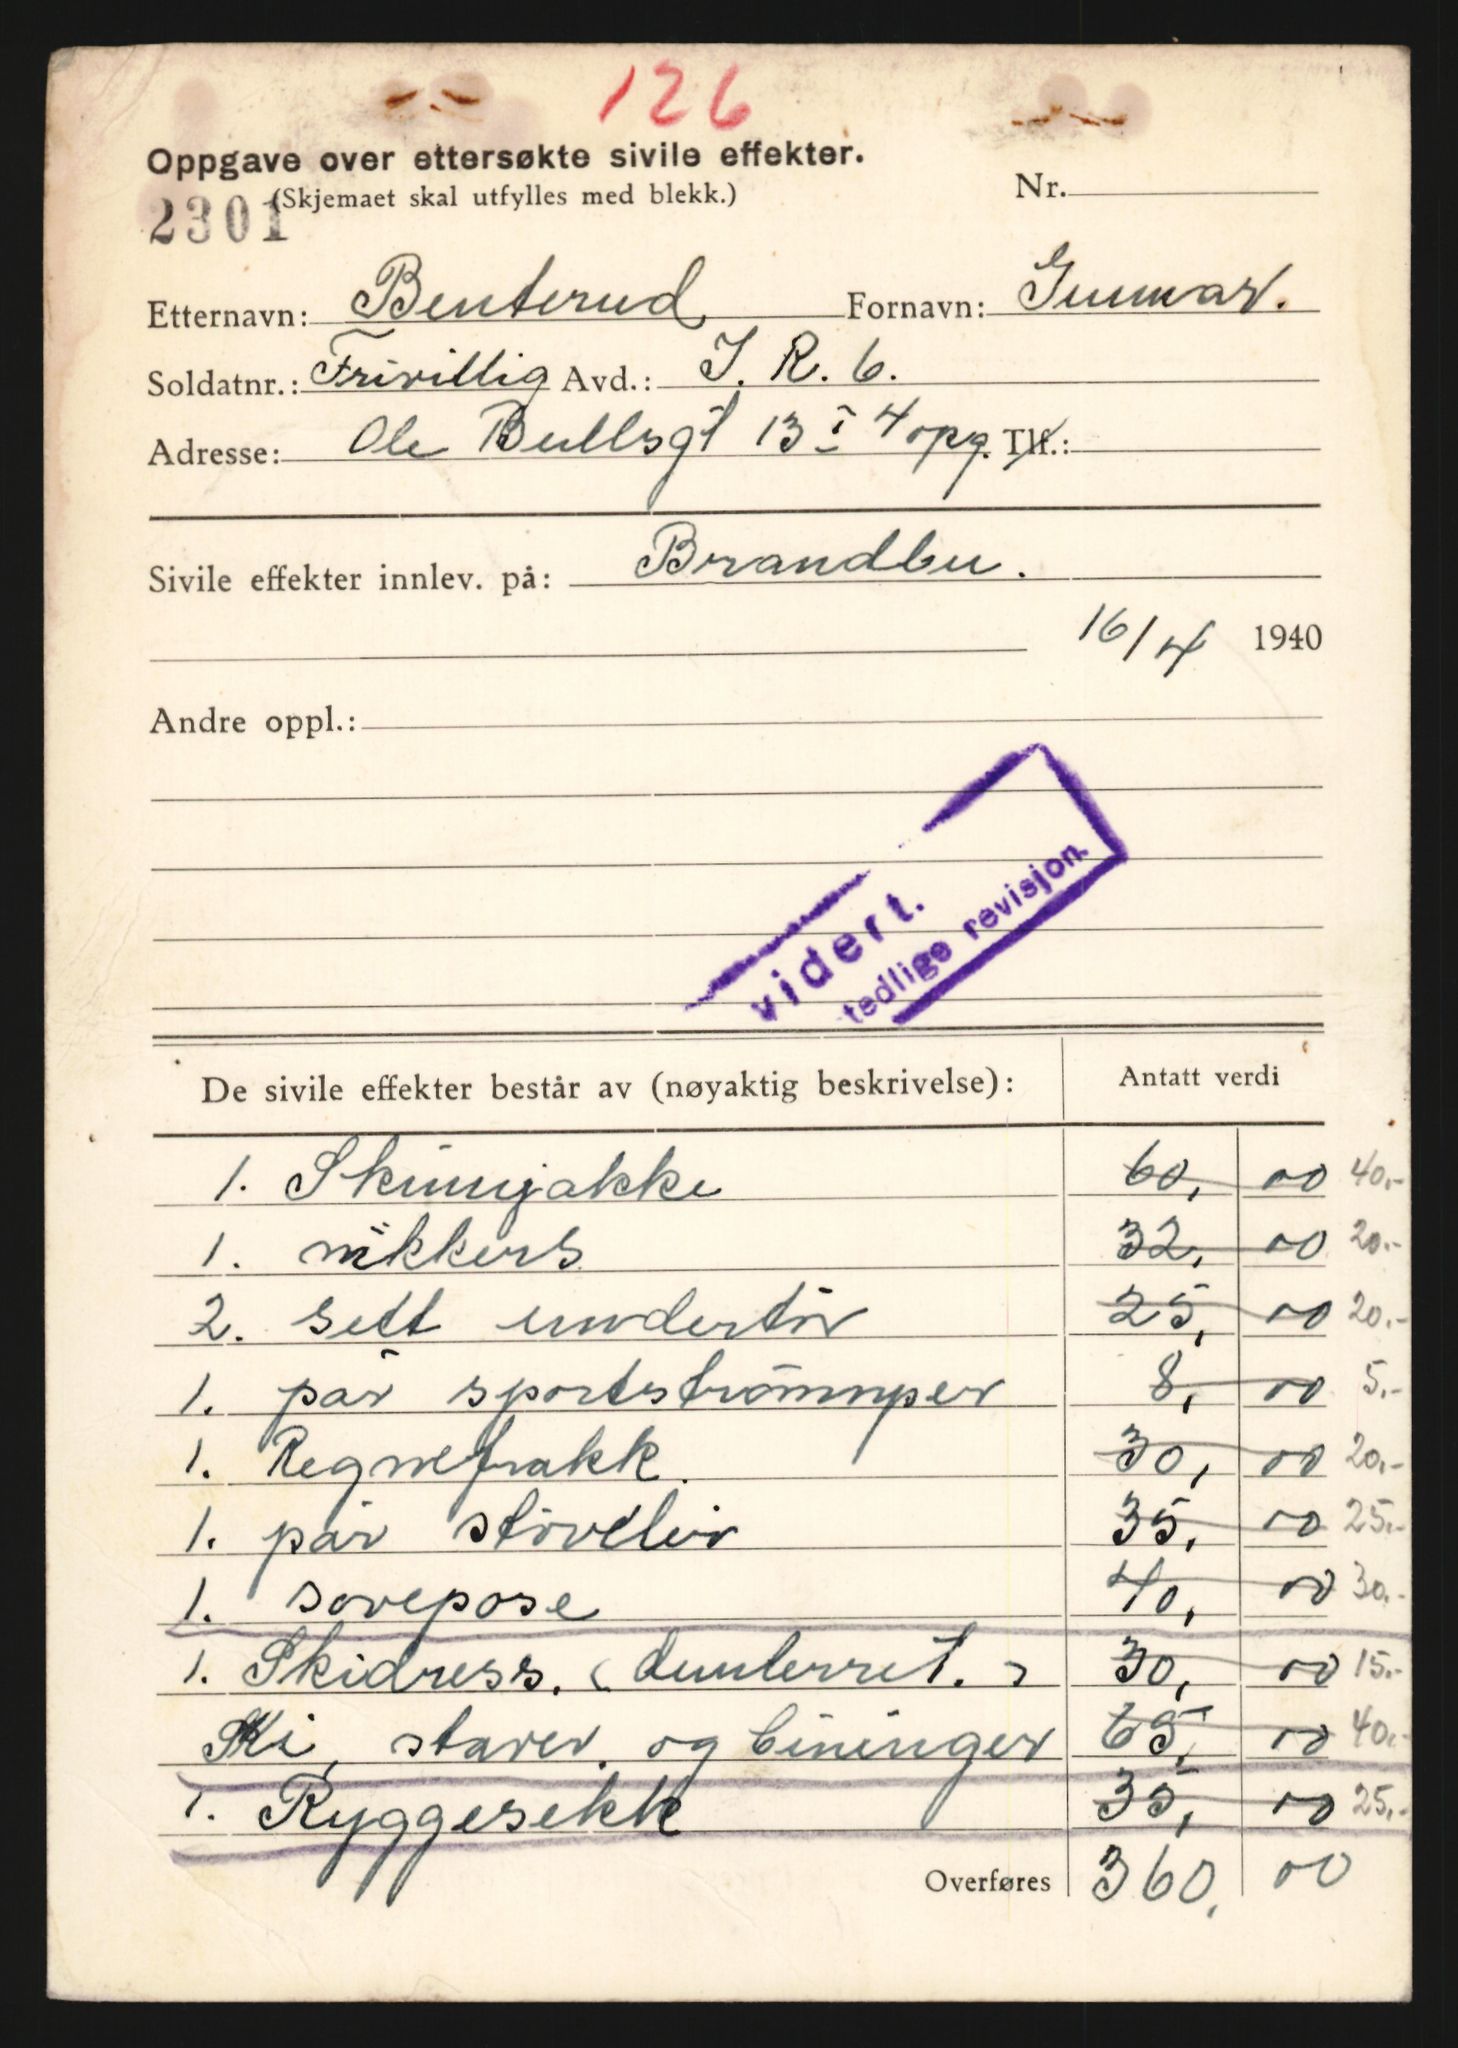 126
Oppgave over ettersøkte sivile effekter.
(Skjemaet skal utfylles med blekk.)
Nr.
2301
Etternavn: Benterud Fornavn: Gunnar.
Soldatnr.: Frivillig Avd.: I. R. 6.
Adresse: Ole Bullsgt 13 I 4 opg. Tlf.:
Sivile effekter innlev. på: Brandbu.
16/4 1940
Andre oppl.:
vidert.
tedlige revisjon.
De sivile effekter består av (nøyaktig beskrivelse): Antatt verdi
1. Skinnjakke 60, 00 40.-
1. nikkers 32, 00 20.-
2. sett undertöv 25, 00 20.-
1. par sportströmper 8, 00 5.-
1. Regnefrakk. 30, 00 20.-
1. par stövler 35, 00 25.-
1. sovepose 40, 00 30.-
1. Skidress. 30, 00 15.-
Ski, staver, og bininger 65, 00 40.-
1. Ryggesekk 35, 00 25.-
Overføres 360, 00